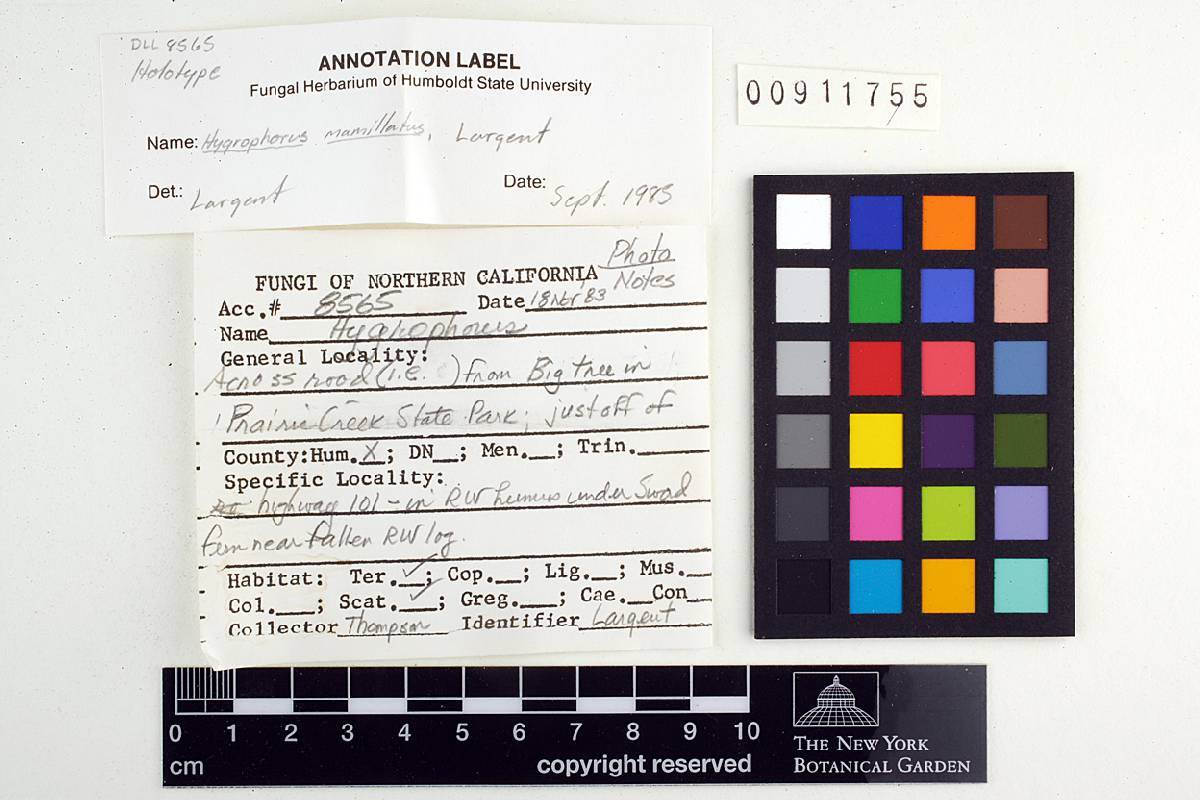 DLL 8565
Holotype
ANNOTATION LABEL
Fungal Herbarium of Humboldt State University
Name: Hygrophorus mamillatus, Largent
Det.: Largent
Date: Sept. 1985
00911755
Photo
Notes
FUNGI OF NORTHERN CALIFORNIA
Acc.# 8565 Date 18 83
Name Hygrophorus
General Locality:
Across road (i.e. ) from Big tree in
Prairie Creek State Park; just off of
County:Hum. X; DN__; Men.__; Trin.____
Specific Locality:
highway 101 - in RW humus under Sword
fern near fallen RW log.
Habitat: Ter. ✓; Cop.__; Lig.__; Mus.__
Col.___; Scat. ✓; Greg.___; Cae.__Con__
Collector Thompson Identifier Largent
0 1 2 3 4 5 6 7 8 9 10
cm
copyright reserved
THE NEW YORK
BOTANICAL GARDEN